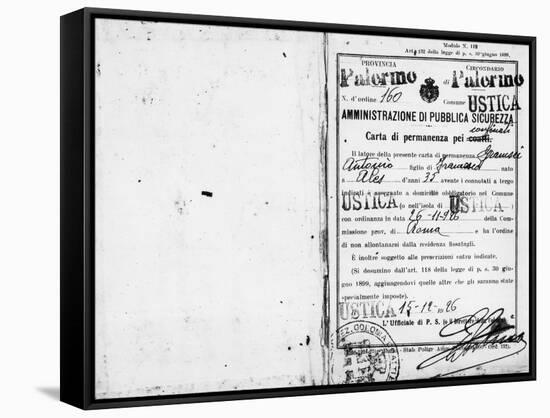 Modulo N. 112
Art. 132 della legge di p. s. 30 giugno 1899.
PROVINCIA CIRCONDARIO
Palermo di Palermo
N. d'ordine 160 Comune USTICA
AMMINISTRAZIONE DI PUBBLICA SICUREZZA
confinati
Carta di permanenza pei coatti.
Il latore della presente carta di permanenza Gramsci
Antonio figlio di Francesco nato
a Ales d'anni 35 avente i connotati a tergo
indicati è assegnato a domicilio obbligatorio nel Comune
USTICA (o nell'isola di USTICA )
con ordinanza in data 26-11-926 della Com-
missione prov. di Roma e ha l'ordine
di non allontanarsi dalla residenza fissatagli.
È inoltre soggetto alle prescrizioni entro indicate.
(Si desumino dall'art. 118 della legge di p. s. 30 giu-
gno 1899, aggiungendovi quelle altre che gli saranno state
specialmente imposte).
USTICA 15-12-926
L'Ufficiale di P. S. (o il Direttore della Colonia)
EZ. COLONIA COATTI
Stab. Polige